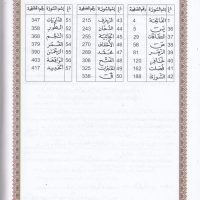 ر.ع إسم السورة رقم الصفحة ر.ع إسم السورة رقم الصفحة ر.ع إسم السورة رقم الصفحة
1 الفاتحة 4 43 الزخرف 215 51 الذاريات 347
36 يس 44 الدخان 243 52 الطور 358
37 الصافات 29 45 الجاثية 53 النجم 368
38 ص 46 الأحقاف 54 القمر 379
39 الزمر 81 47 محمد 289 55 الرحمن
40 غافر 120 48 الفتح 56 الواقعة 403
41 فصلت 162 49 الحجرات 325 57 الحديد 417
42 الشورى 188 50 ق 338